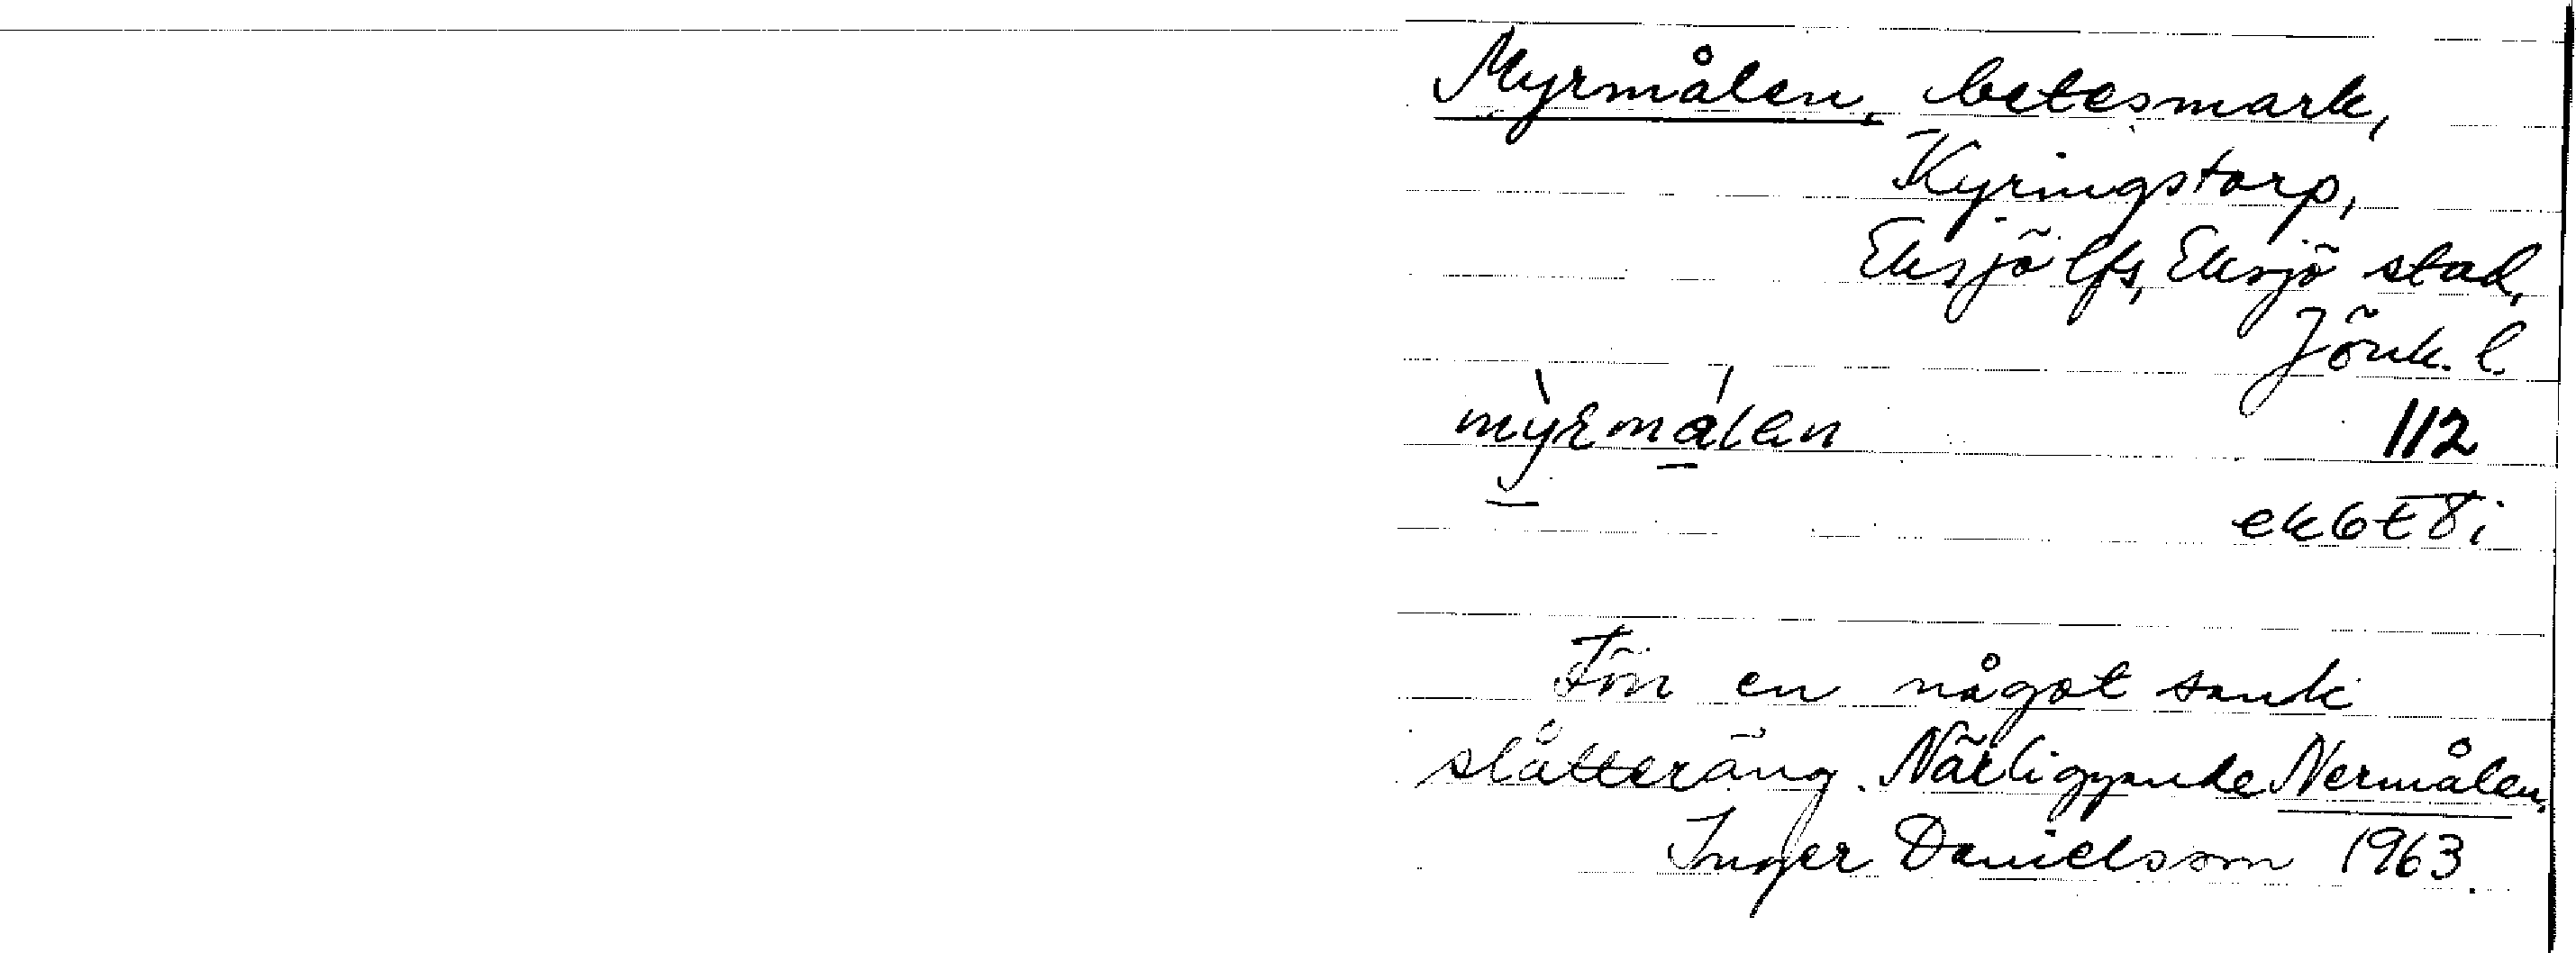 Myrmålen, betesmark,
Kyringstorp,
Eksjö lfs, Eksjö stad,
Jönk. l.
mỳrmálen 112
ek 6 E 8 i
Förr en något sank
slåtteräng. Närliggande Nermålen.
Inger Danielsson 1963.